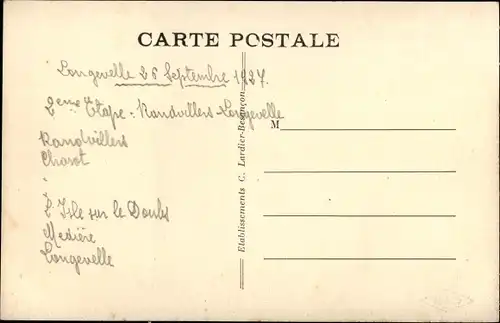 CARTE POSTALE
Longevelle 26 Septembre 1927.
2ème Etape : Randvillers - Longevelle
M
Randvillers
Chazot
"
L'Isle sur le Doubs
Medière
Longevelle
Etablissements C. Lardier-Besançon